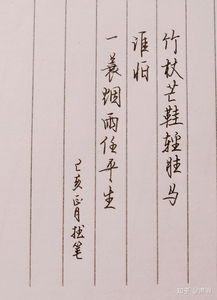 竹杖芒鞋轻胜马
谁怕
一蓑烟雨任平生
己亥正月拙笔
知乎